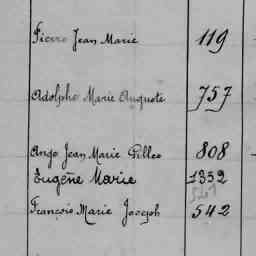 Pierre Jean Marie 119
Adolphe Marie Auguste 757
Ange Jean Marie Gilles 808
Eugène Marie 1352
François Marie Joseph 542